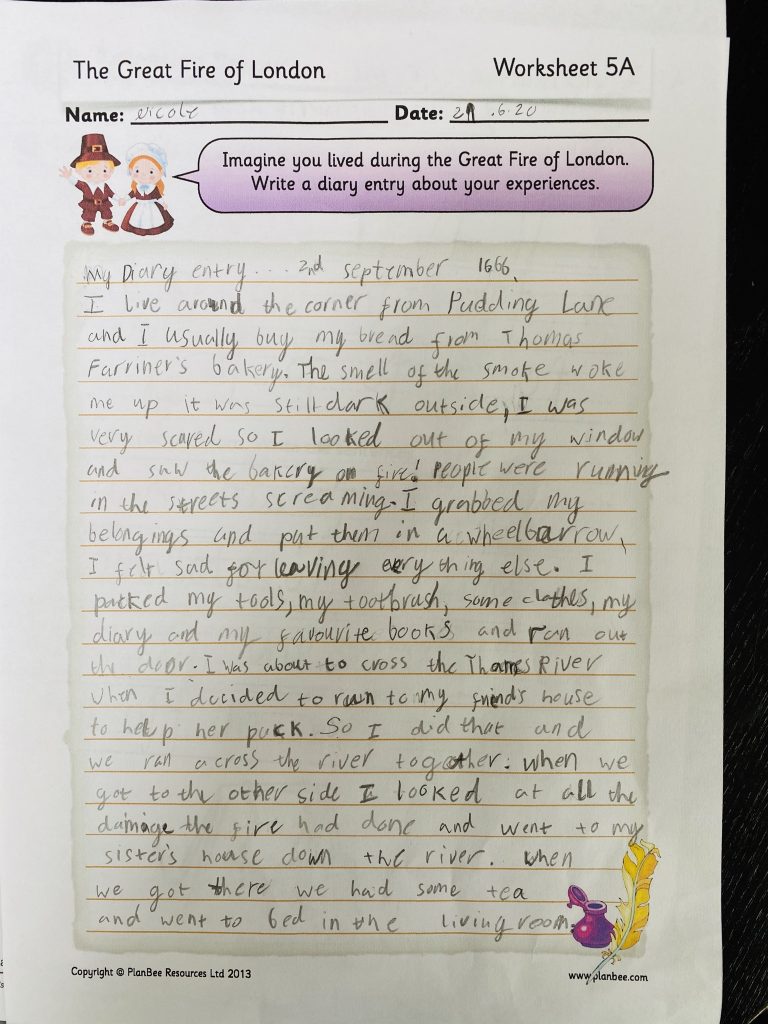 The Great Fire of London Worksheet 5A
Name: Nicole Date: 21.6.20
Imagine you lived during the Great Fire of London.
Write a diary entry about your experiences.
My Diary entry... 2nd september 1666.
I live around the corner from Pudding Lane
and I usually buy my bread from Thomas
Farriner's bakery. The smell of the smoke woke
me up it was still dark outside, I was
very scared so I looked out of my window
and saw the bakery on fire! People were running
in the streets screaming. I grabbed my
belongings and put them in a wheelbarrow,
I felt sad for leaving everything else. I
packed my tools, my tootbrush, some clothes, my
diary and my favourite books and ran out
the door. I was about to cross the Thames River
when I decided to run to my friend's house
to help her pack. So I did that and
we ran across the river together. When we
got to the other side I looked at all the
damage the fire had done and went to my
sister's house down the river. When
we got there we had some tea
and went to bed in the livingroom.
Copyright © PlanBee Resources Ltd 2013 www.planbee.com